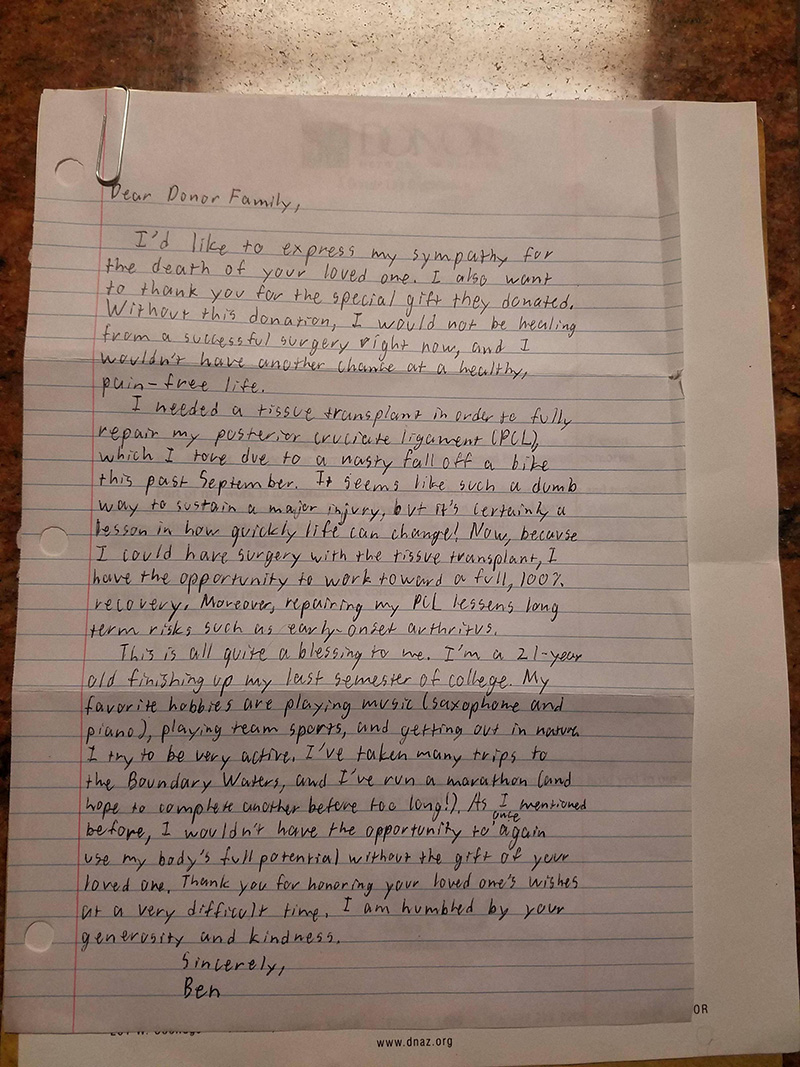 Dear Donor Family,
I'd like to express my sympathy for
the death of your loved one. I also want
to thank you for the special gift they donated.
Without this donation, I would not be healing
from a successful surgery right now, and I
wouldn't have another chance at a healthy,
pain-free life.
I needed a tissue transplant in order to fully
repair my posterior cruciate ligament (PCL),
which I tore due to a nasty fall off a bike
this past September. It seems like such a dumb
way to sustain a major injury, but it's certainly a
lesson in how quickly life can change! Now, because
I could have surgery with the tissue transplant, I
have the opportunity to work toward a full, 100%
recovery. Moreover, repairing my PCL lessens long
term risks such as early-onset arthritus.
This is all quite a blessing to me. I'm a 21-year
old finishing up my last semester of college. My
favorite hobbies are playing music (saxophone and
piano), playing team sports, and getting out in nature.
I try to be very active. I've taken many trips to
the Boundary Waters, and I've run a marathon (and
hope to complete another before too long!). As I mentioned
before, I wouldn't have the opportunity to once again
use my body's full potential without the gift of your
loved one. Thank you for honoring your loved one's wishes
at a very difficult time. I am humbled by your
generosity and kindness.
Sincerely,
Ben
OR
www.dnaz.org